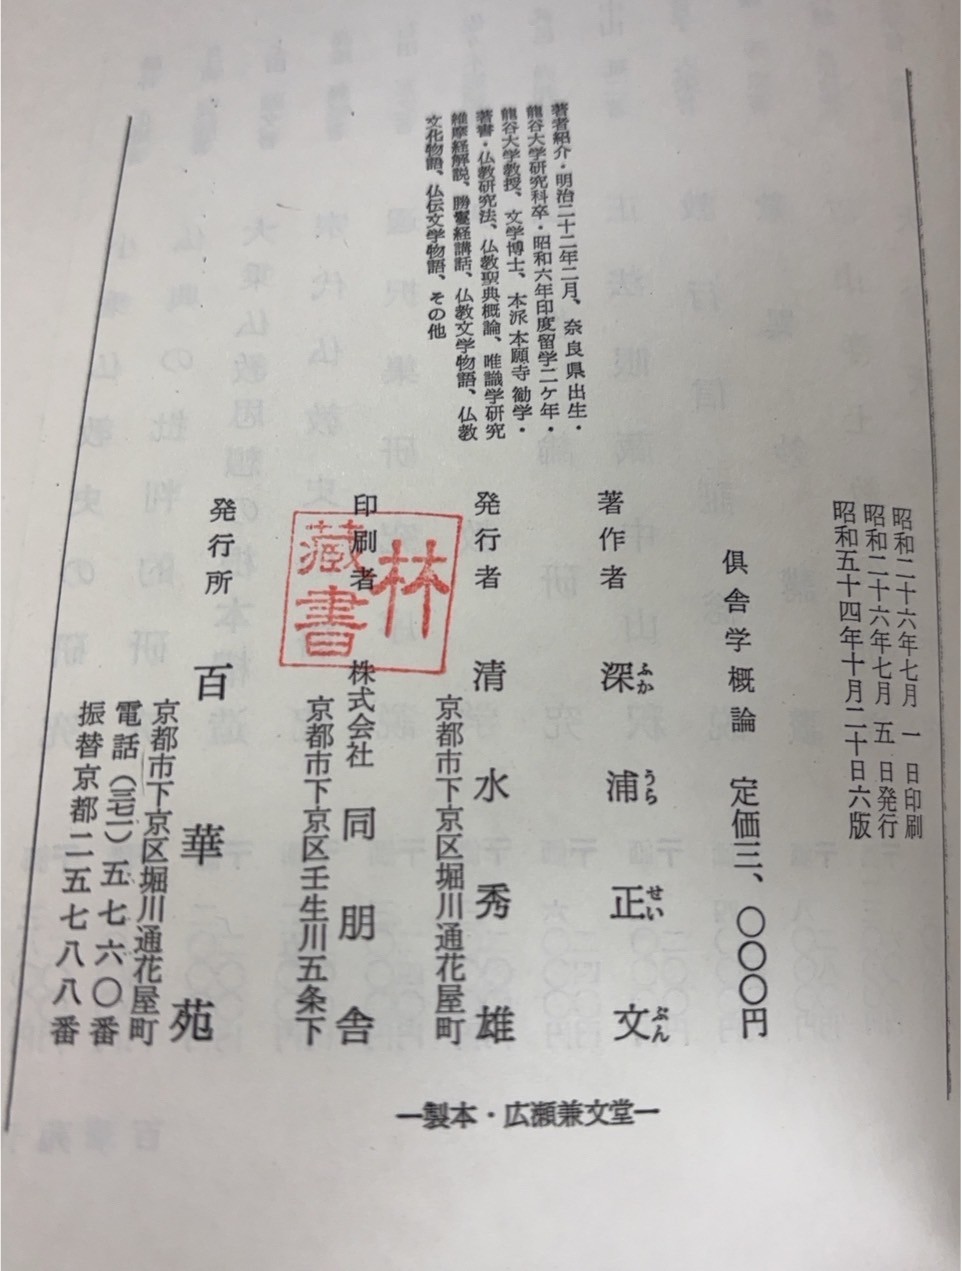 昭和二十六年七月 一 日印刷
昭和二十六年七月 五 日発行
昭和五十四年十月二十日六版
俱舎学概論 定価三、〇〇〇円
著作者 深浦正文
ふか うら せい ぶん
発行者 清水秀雄
京都市下京区堀川通花屋町
印刷者 株式会社 同朋舎
京都市下京区壬生川五条下
林
蔵書
発行所 百華苑
京都市下京区堀川通花屋町
電話(三七一)五七六〇番
振替京都二五七八八番
著者紹介・明治二十二年二月、奈良県出生・
龍谷大学研究科卒・昭和六年印度留学二ケ年・
龍谷大学教授、文学博士、本派本願寺勧学・
著書・仏教研究法、仏教聖典概論、唯識学研究
維摩経解説、勝鬘経講話、仏教文学物語、仏教
文化物語、仏伝文学物語、その他
―製本・広瀬兼文堂―